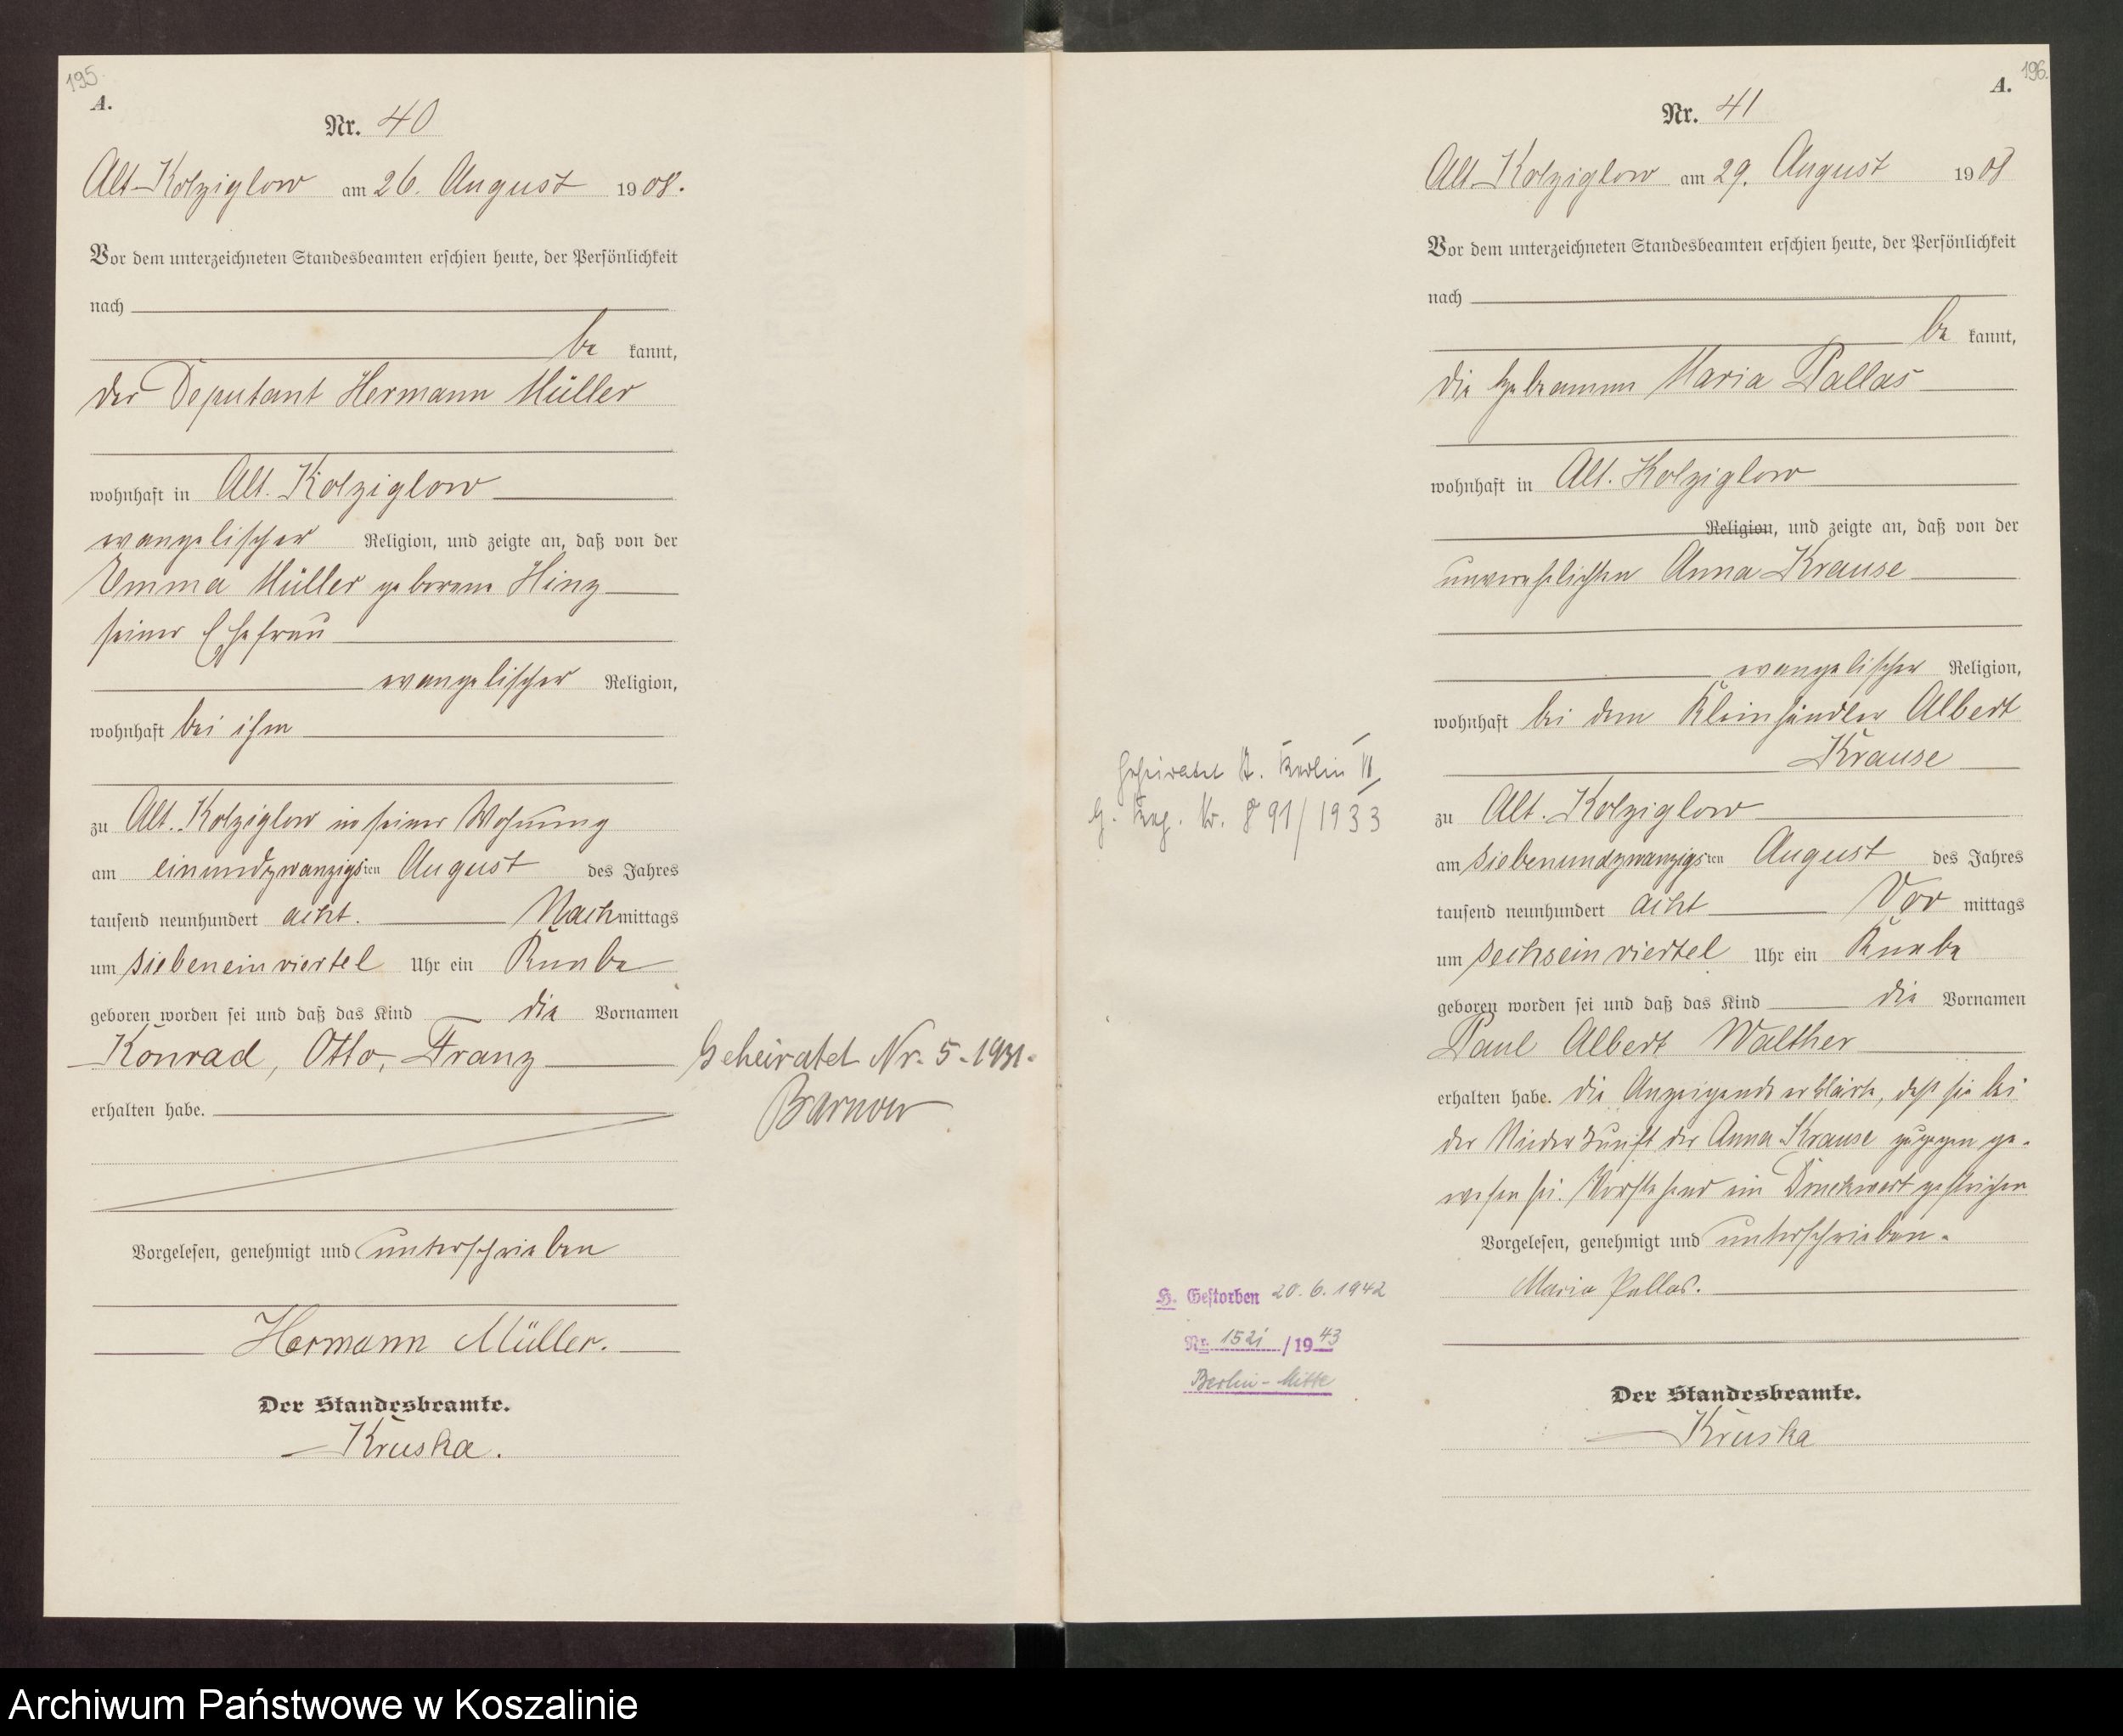 195
A.
Nr. 40
Alt-Kolziglow am 26. August 1908.
Vor dem unterzeichneten Standesbeamten erschien heute, der Persönlichkeit
nach
be kannt,
der Deputant Hermann Müller
wohnhaft in Alt. Kolziglow
evangelischer Religion, und zeigte an, daß von der
Emma Müller geborene Hinz
seiner Ehefrau
evangelischer Religion,
wohnhaft bei ihm
zu Alt. Kolziglow in seiner Wohnung
am einundzwanzigsten August des Jahres
tausend neunhundert acht. Nachmittags
um siebeneinviertel Uhr ein Knabe
geboren worden sei und daß das Kind die Vornamen
Konrad, Otto, Franz
erhalten habe.
Vorgelesen, genehmigt und unterschrieben
Hermann Müller.
Der Standesbeamte.
Kruska.
Geheiratet Nr. 5-1931.
Barnow
196.
A.
Nr. 41
Alt-Kolziglow am 29. August 1908
Vor dem unterzeichneten Standesbeamten erschien heute, der Persönlichkeit
nach
be kannt,
die Hebamme Maria Pallas
wohnhaft in Alt. Kolziglow
Religion, und zeigte an, daß von der
unverehelichten Anna Krause
evangelischer Religion,
wohnhaft bei dem Kleinhändler Albert
Krause
zu Alt. Kolziglow
am siebenundzwanzigsten August des Jahres
tausend neunhundert acht Vor mittags
um sechseinviertel Uhr ein Knabe
geboren worden sei und daß das Kind die Vornamen
Paul Albert Walther
erhalten habe. Die Anzeigende erklärte, daß sie bei
der Niederkunft der Anna Krause zugegen ge-
wesen sei. Vorstehend ein Druckwort gestrichen
Vorgelesen, genehmigt und unterschrieben.
Maria Pallas.
Der Standesbeamte.
Kruska
Geheiratet St. Berlin VI
H. Reg. Nr. 891/1933
H. Gestorben 20.6.1942
Nr. /1943
Berlin-Mitte
Archiwum Państwowe w Koszalinie